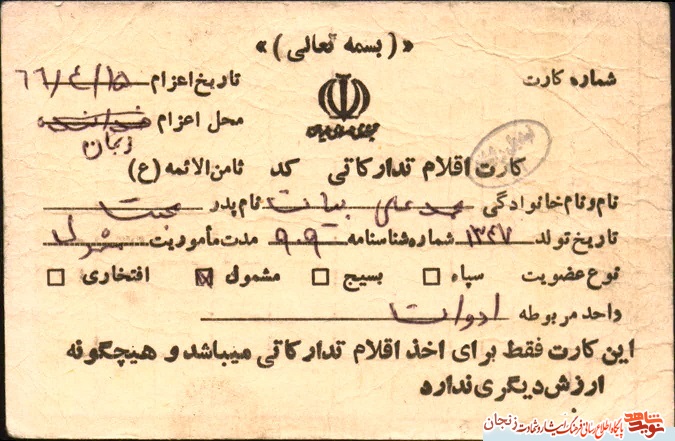 « ( بسمه تعالی ) »
شماره کارت
تاریخ اعزام ۶۶/۴/۱۵
جمهوری اسلامی ایران
محل اعزام
زنجان
کارت اقلام تدارکاتی کد ثامن الائمه (ع)
نام و نام خانوادگی محمد علی بیات نام پدر محبت
تاریخ تولد ۱۳۴۷ شماره شناسنامه ۹۰۹ مدت مأموریت
نوع عضویت سپاه □ بسیج □ مشمول ☒ افتخاری □
واحد مربوطه ادوات
این کارت فقط برای اخذ اقلام تدارکاتی میباشد و هیچگونه
ارزش دیگری ندارد
نوید شاهد پایگاه اطلاع رسانی فرهنگ ایثار و شهادت زنجان